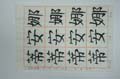 娜娜娜娜
安安安安
蒂蒂蒂蒂